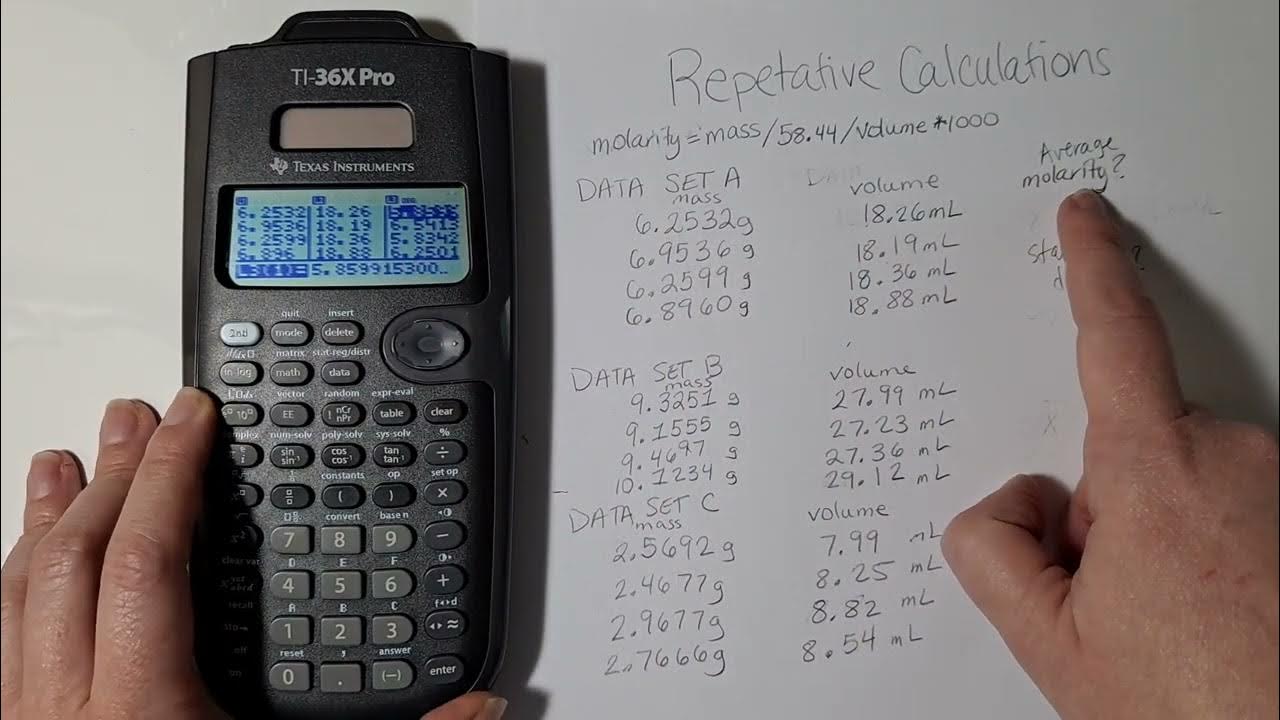 TI-36X Pro
TEXAS INSTRUMENTS
L1 L2 L3 DEG
6.2532 18.26 5.8599
6.9536 18.19 6.5413
6.2599 18.36 5.8342
6.896 18.88 6.2501
L3(1)=5.859915300..
quit insert
2nd mode delete
matrix stat-reg/distr
ln log math data
vector random expr-eval
10 EE ! nCr nPr table clear
num-solv poly-solv sys-solv %
sin sin-1 cos cos-1 tan tan-1 ÷
constants op set op
( ) ×
convert base n
7 8 9 −
clear var D E F
4 5 6 +
recall A B C f◂▸d
sto→ 1 2 3 ◂▸≈
off reset , answer
on 0 . (−) enter
Repetative Calculations
molarity=mass/58.44/volume*1000
DATA SET A volume Average
mass molarity?
6.2532g 18.26mL
6.9536 g 18.19 mL
6.2599 g 18.36 mL
6.8960 g 18.88 mL
DATA SET B volume
mass
9.3251 g 27.99 mL
9.1555 g 27.23 mL
9.4697 g 27.36 mL
10.1234 g 29.12 mL
DATA SET C volume
mass
2.5692 g 7.99 mL
2.4677g 8.25 mL
2.9677g 8.82 mL
2.7666g 8.54 mL